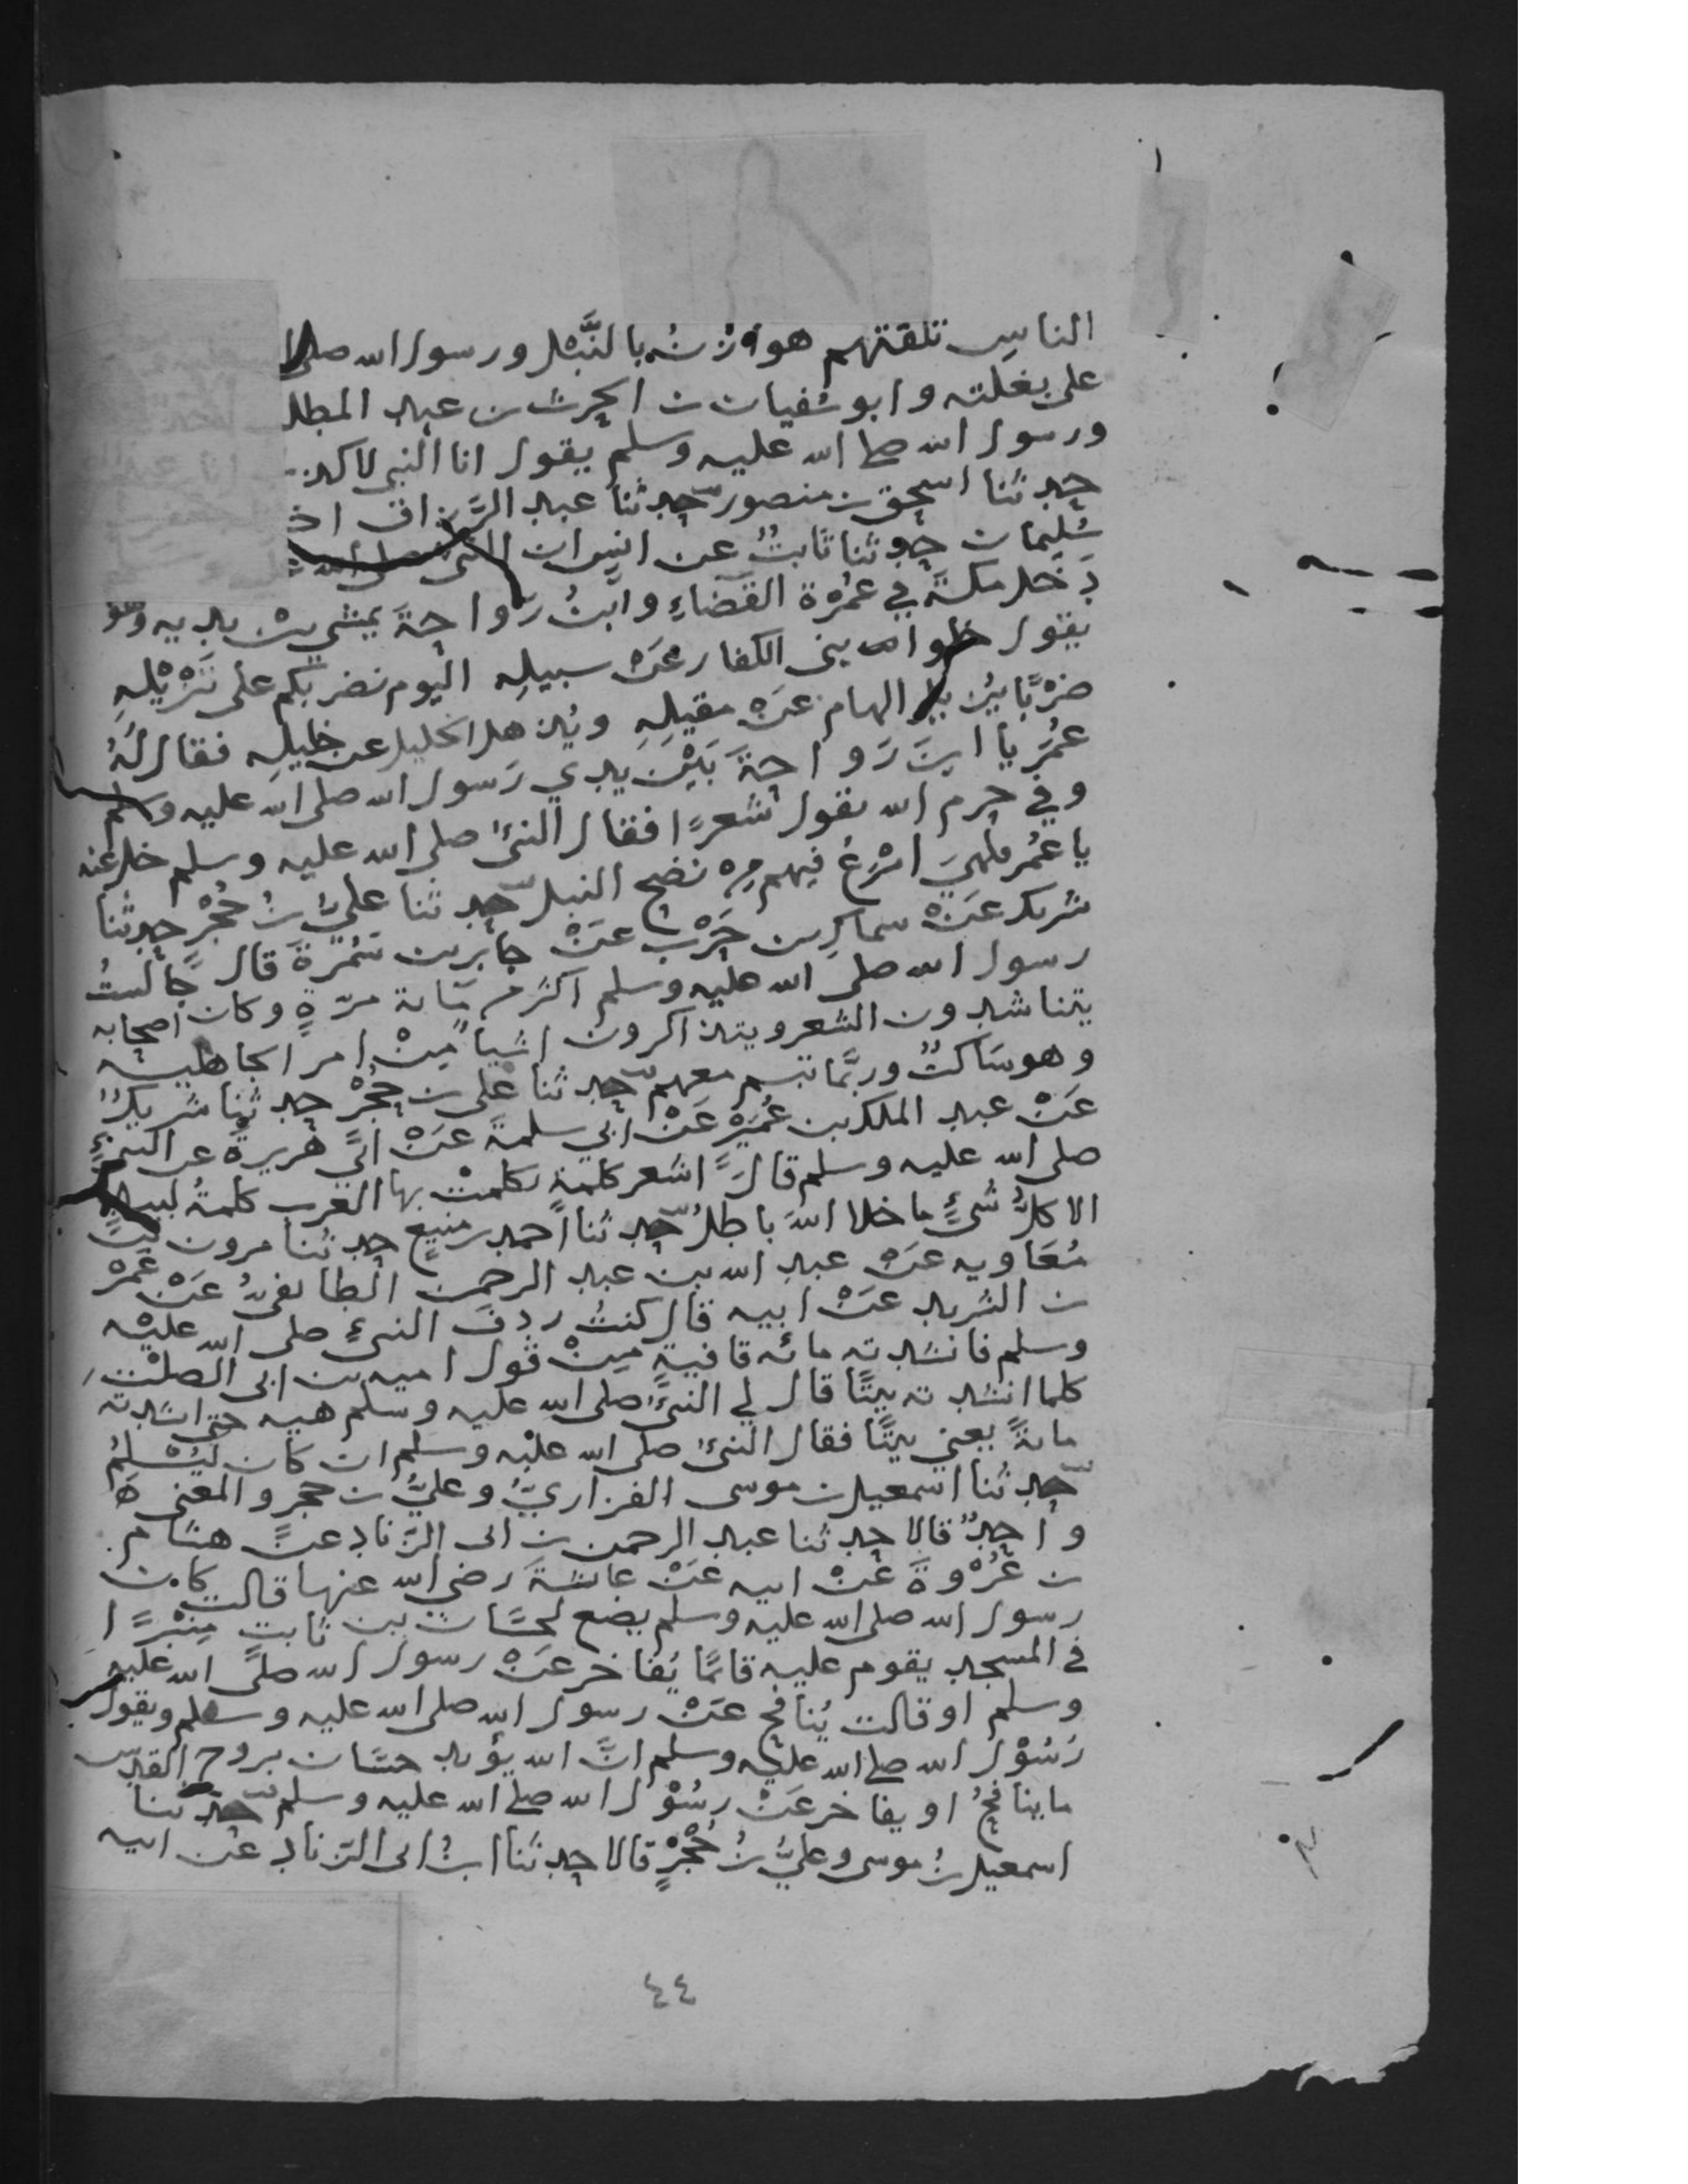 الناس تلقتهم هوازن بالنَّبْل ورسول الله صلى
على بغلته وابو سُفيان بن الحرث بن عبد المطلـ
ورسول الله صلى الله عليه وسلم يقول انا النبي لا كذ
حدثنا اسحق بن منصور حدثنا عبد الرَّزاق اخـ
سُليمان حدثنا ثابتٌ عن انس ان النبي صلى الله
دَخل مكةَ في عُمْرَة القضاءِ وابنُ رَواحةَ يمشي بين يديه وهو
يقول خلوا بني الكفار عَنْ سبيلِه اليوم نضربكم على تَنْزيْلِه
ضرْبًا يُزيل الهام عَنْ مقيلِهِ ويُذهل الخليل عن خليلِه فقال لهُ
عُمَر يا ابنَ رَواحةَ بَيْنَ يدي رَسول الله صلى الله عليه وسلم
وفي حرم الله تقول شعرًا فقال النبيُ صلى الله عليه وسلم خل عنه
يا عُمر فلهيَ اسْرَعُ فيهم مِنْ نضح النبل حدثنا عليُّ بنُ حُجْرٍ حدثنا
شريك عَنْ سماك بن حَرْب عَنْ جابر بن سَمُرَةَ قال جالستُ
رسول الله صلى الله عليه وسلم اكثر من مائة مرّةٍ وكان اصحابه
يتناشدون الشعر ويتذاكرون اشيا مِنْ امر الجاهلية
وهو ساكتٌ وربَّما تبسم معهم حدثنا علي بن حُجْرٍ حدثنا شريكٌ
عَنْ عبد الملك بن عُمَيْرٍ عَنْ ابي سلمةَ عَنْ ابي هريرةَ عن النبيِ
صلى الله عليه وسلم قالَ اشعر كلمةٍ تكلمتْ بها العرب كلمةُ لبيدٍ
الا كلُّ شيءٍ ما خلا اللهَ باطلُ حدثنا احمد بن منيع حدثنا مرون بن
مُعَاويه عَنْ عبدِ الله بن عبد الرحمن الطايفيُ عَنْ عَمْرِو
بن الشريد عَنْ ابيه قال كنتُ رِدفَ النبيِ صلى الله عليْه
وسلم فانشدته مائه قافيةٍ مِنْ قول اميه بن ابي الصلْت
كلما انشدته بيتًا قال لي النبيُ صلى الله عليه وسلم هيه حتى انشدته
مايةً يعني بيتًا فقال النبيُ صلى الله عليْه وسلم ان كان ليُسْلِمُ
حدثنا اسمعيل بن موسى الفزاريُّ وعليُّ بن حجر والمعنى
واحدٌ قالا حدثنا عبد الرحمن بن ابي الزناد عن هشام
بن عُرْوةَ عَنْ ابيه عَنْ عايشةَ رضي الله عنها قالت كان
رسول الله صلى الله عليه وسلم يضع لحسّان بن ثابتٍ مِنْبَرًا
في المسجد يقوم عليه قائمًا يُفاخر عَنْ رسول الله صلى الله عليه
وسلم او قالت يُنافح عَنْ رسول الله صلى الله عليه وسلم ويقول
رَسُوْل الله صلى الله عليه وسلم انَّ الله يؤيد حسّان بروح القدس
ما ينافحُ او يفاخر عَنْ رسُوْل الله صلى الله عليه وسلم حدثنا
اسمعيل بنُ موسى وعليُّ بنُ حُجْرٍ قالا حدثنا ابنُ ابي الزناد عن ابيه
٤٤